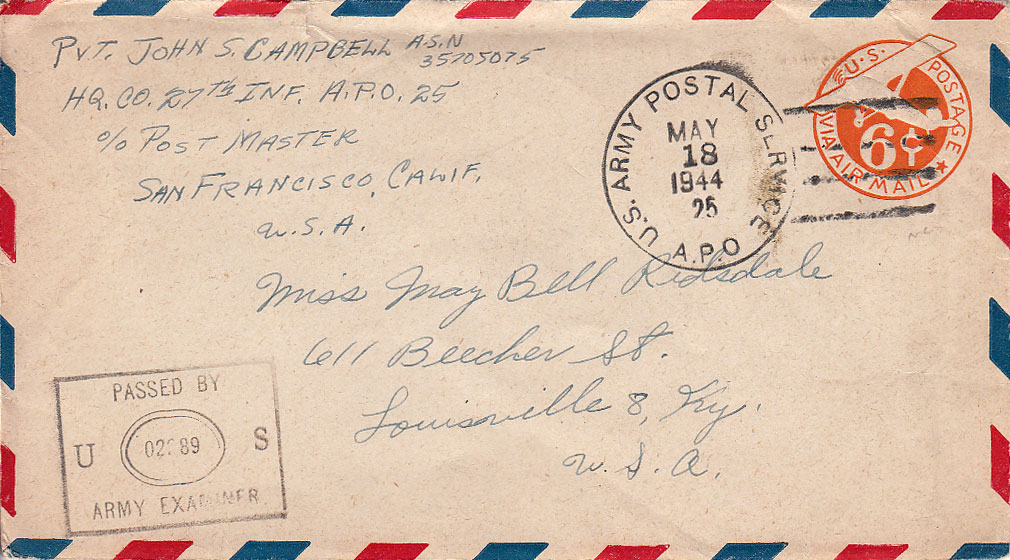 PVT. JOHN S. CAMPBELL A.S.N
35705075
HQ. CO. 27TH INF. A.P.O. 25
c/o POST MASTER
SAN FRANCISCO, CALIF.
U.S.A.
U.S. ARMY POSTAL SERVICE
MAY
18
1944
25
A.P.O
U.S. POSTAGE
6¢
VIA AIR MAIL
Miss May Bell Ridsdale
611 Beecher St.
Louisville 8, Ky.
U.S.A.
PASSED BY
U S
ARMY EXAMINER